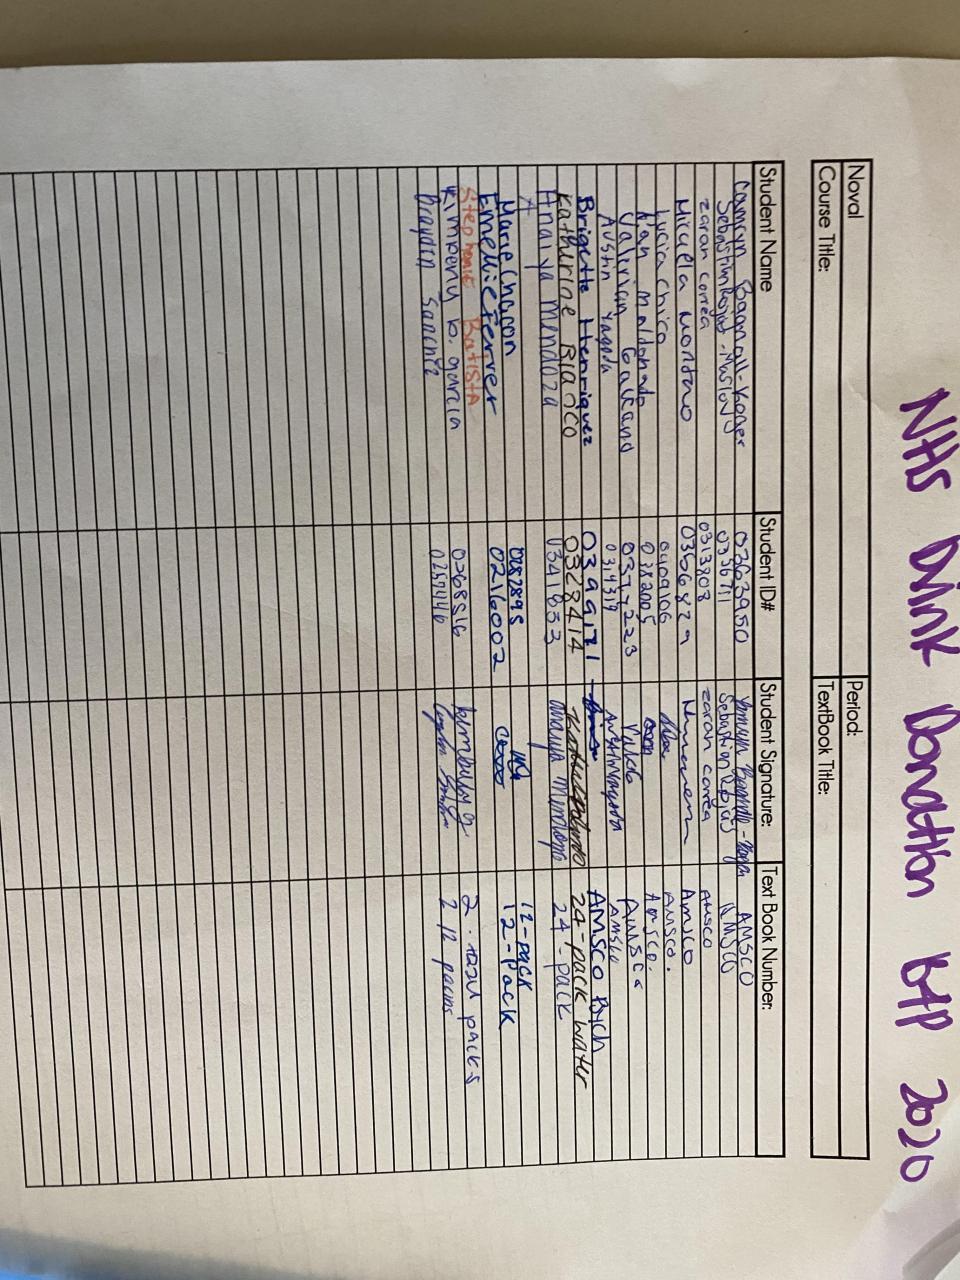 NHS Drink Donation BTP 2020
Noval Period:
Course Title: TextBook Title:
Student Name Student ID# Student Signature: Text Book Number:
Camryn Bagnall-Koger 0263950 AMSCO
Sebastian Rojas- 0356711 Sebastian Rojas AMSCO
zarah correa 0313808 zarah correa AMSCO
Micaela Montano 0366829 AMSCO
Lucia Chico 0409106 AMSCO.
Alan maldonado 0382005 AMSCO.
Valerian Galeano 0374223 AMSCO
Austin Yagoda 0314319 Austin Yagoda AMSCO
Brigette Henriquez 0399171 AMSCO Psych
Katherine Blanco 0328414 24-pack water
Anaiya Mendoza 0341853 anaiya mendoza 24-pack
A
Marie Chacon 0282895 MC 12-pack
Emellie Ferrer 0216002 12-Pack
Stephanie Batista
Kimberly B. garcia 0268516 kimberly g. 2 packs
Brayden Sanchez 0257446 2 12 packs